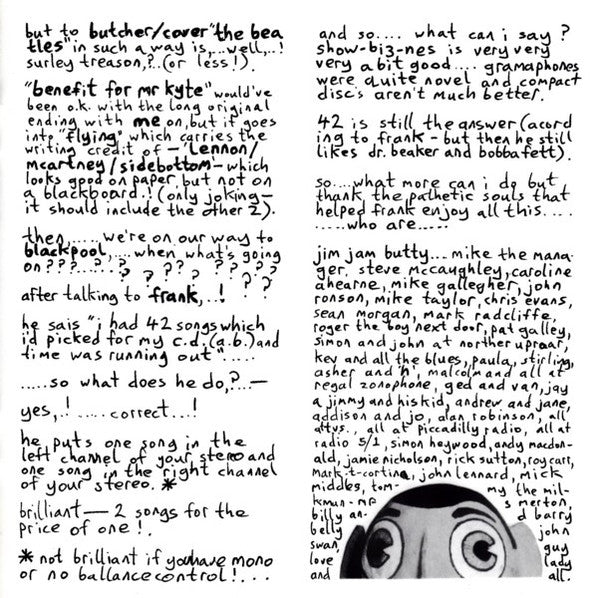 but to butcher/cover "the bea
tles" in such a way is,...well,..!
surley treason,?..(or less!).
"benefit for mr kyte" would've
been o.k. with the long original
ending with me on, but it goes
into "flying" which carries the
writing credit of - 'lennon/
mccartney/sidebottom' - which
looks good on paper, but not on
a blackboard.! (only joking -
it should include the other 2).
then,.....we're on our way to
blackpool,...when what's going
on???...?..?
? ? ?? ? ?? ??
after talking to frank,..! ? ??
he sais "i had 42 songs which
i'd picked for my c.d.(a.b.) and
time was running out".....
.....so what does he do,?..—
yes,.! .....correct...!
he puts one song in the
left channel of your stereo and
one song in the right channel
of your stereo. *
brilliant — 2 songs for the
price of one!.
* not brilliant if you have mono
or no ballance control!...
and so.... what can i say?
show-biz-nes is very very
very a bit good.... gramaphones
were quite novel and compact
disc's aren't much better.
42 is still the answer (acord
ing to frank - but then he still
likes dr. beaker and bobba fett).
so....what more can i do but
thank, the pathetic souls that
helped frank enjoy all this....
.....who are.....
jim jam butty... mike the mana-
ger, steve mccaughley, caroline
ahearne, mike gallegher, john
ronson, mike taylor, chris evans,
sean morgan, mark radcliffe,
roger the boy next door, pat galley,
simon and john at norther uproar,
kev and all the blues, paula, stirling,
asher and 'n', malcolm and all at
regal zonophone, ged and van, jay
a jimmy and his kid, andrew and jane,
addison and jo, alan robinson, all
at tvs., all at piccadilly radio, all at
radio 5/1, simon heywood, andy macdon-
ald, jamie nicholson, rick sutton, roy carr,
mark-t-cortina, john lennard, mick
middles, tom- my the mil-
kman - mr s merton,
billy an- d barry
belly john
swan, guy
love lady
and all.